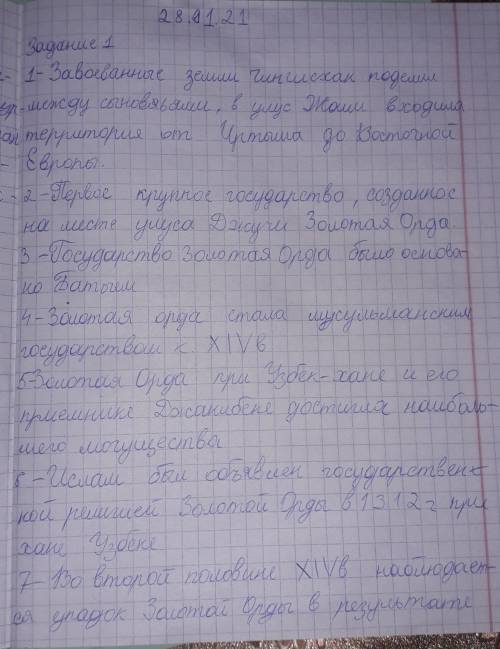 28.01.21
Задание 1
1-Завоеванные земли Чингисхан поделил
между сыновьями, в улус Жоши входила
территория от Иртыша до Восточной
Европы.
2-Первое крупное государство, созданное
на месте улуса Джучи Золотая Орда.
3-Государство Золотая Орда было основа-
но Батыим
4-Золотая орда стала мусульманским
государством к XIVв
5-Золотая Орда при Узбек-хане и его
приемнике Джанибеке достигла наиболь-
шего могущества
6-Ислам был объявлен государствен-
ной религией Золотой Орды в 1312г при
хане Узбеке
7-Во второй половине XIVв наблюдает-
ся упадок Золотой Орды в результате